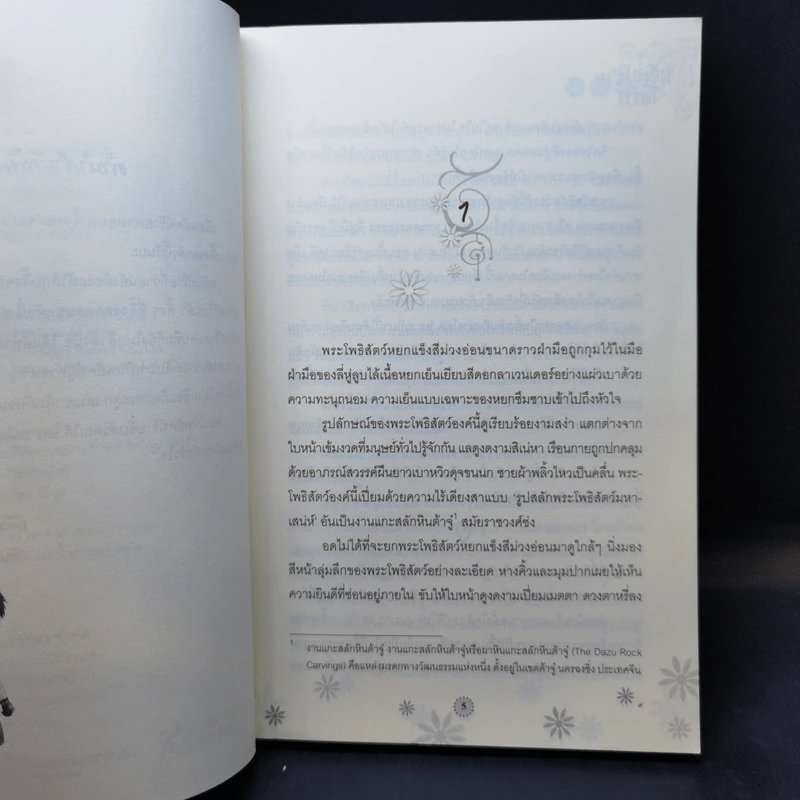 1
พระโพธิสัตว์หยกแข็งสีม่วงอ่อนขนาดราวฝ่ามือถูกกุมไว้ในมือ
ฝ่ามือของลี่หู่ลูบไล้เนื้อหยกเย็นเยียบสีดอกลาเวนเดอร์อย่างแผ่วเบาด้วย
ความทะนุถนอม ความเย็นแบบเฉพาะของหยกซึมซาบเข้าไปถึงหัวใจ
รูปลักษณ์ของพระโพธิสัตว์องค์นี้ดูเรียบร้อยงามสง่า แตกต่างจาก
ใบหน้าเข้มงวดที่มนุษย์ทั่วไปรู้จักกัน แลดูงดงามสิเน่หา เรือนกายถูกปกคลุม
ด้วยอาภรณ์สวรรค์ผืนยาวเบาหวิวดุจขนนก ชายผ้าพลิ้วไหวเป็นคลื่น พระ-
โพธิสัตว์องค์นี้เปี่ยมด้วยความไร้เดียงสาแบบ ‘รูปสลักพระโพธิสัตว์มหา-
เสน่ห์’ อันเป็นงานแกะสลักหินต้าจู๋1 สมัยราชวงศ์ซ่ง
อดไม่ได้ที่จะยกพระโพธิสัตว์หยกแข็งสีม่วงอ่อนมาดูใกล้ๆ นิ่งมอง
สีหน้าลุ่มลึกของพระโพธิสัตว์อย่างละเอียด หางคิ้วและมุมปากเผยให้เห็น
ความยินดีที่ซ่อนอยู่ภายใน ขับให้ใบหน้าดูงดงามเปี่ยมเมตตา ดวงตาหรี่ลง
1 งานแกะสลักหินต้าจู๋ งานแกะสลักหินต้าจู๋หรือผาหินแกะสลักหินต้าจู๋ (The Dazu Rock
Carvings) คือแหล่งมรดกทางวัฒนธรรมแห่งหนึ่ง ตั้งอยู่ในเขตต้าจู๋ นครฉงชิ่ง ประเทศจีน
5